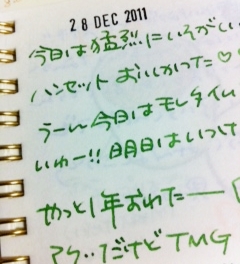 28 DEC 2011
今日は猛烈にいそがし
ハンセット おいしかった♡
うーん今日はモレタイム
いいわー!! 明日はいつ
やっと1年おわたーー
アケ..だけど TMG